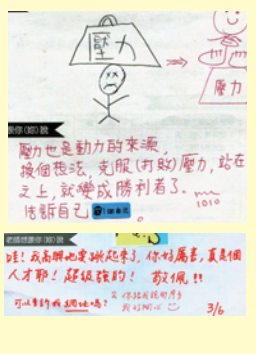 壓力
壓力
壓力也是動力的來源,
換個想法,克服(打敗)壓力,站在
之上,就變成勝利者了。
1010
告訴自己
哇!我高興地要跳起來了,你好厲害,真是個
人才耶!超級強的!敬佩!!
可以告訴我網址嗎?
3/6